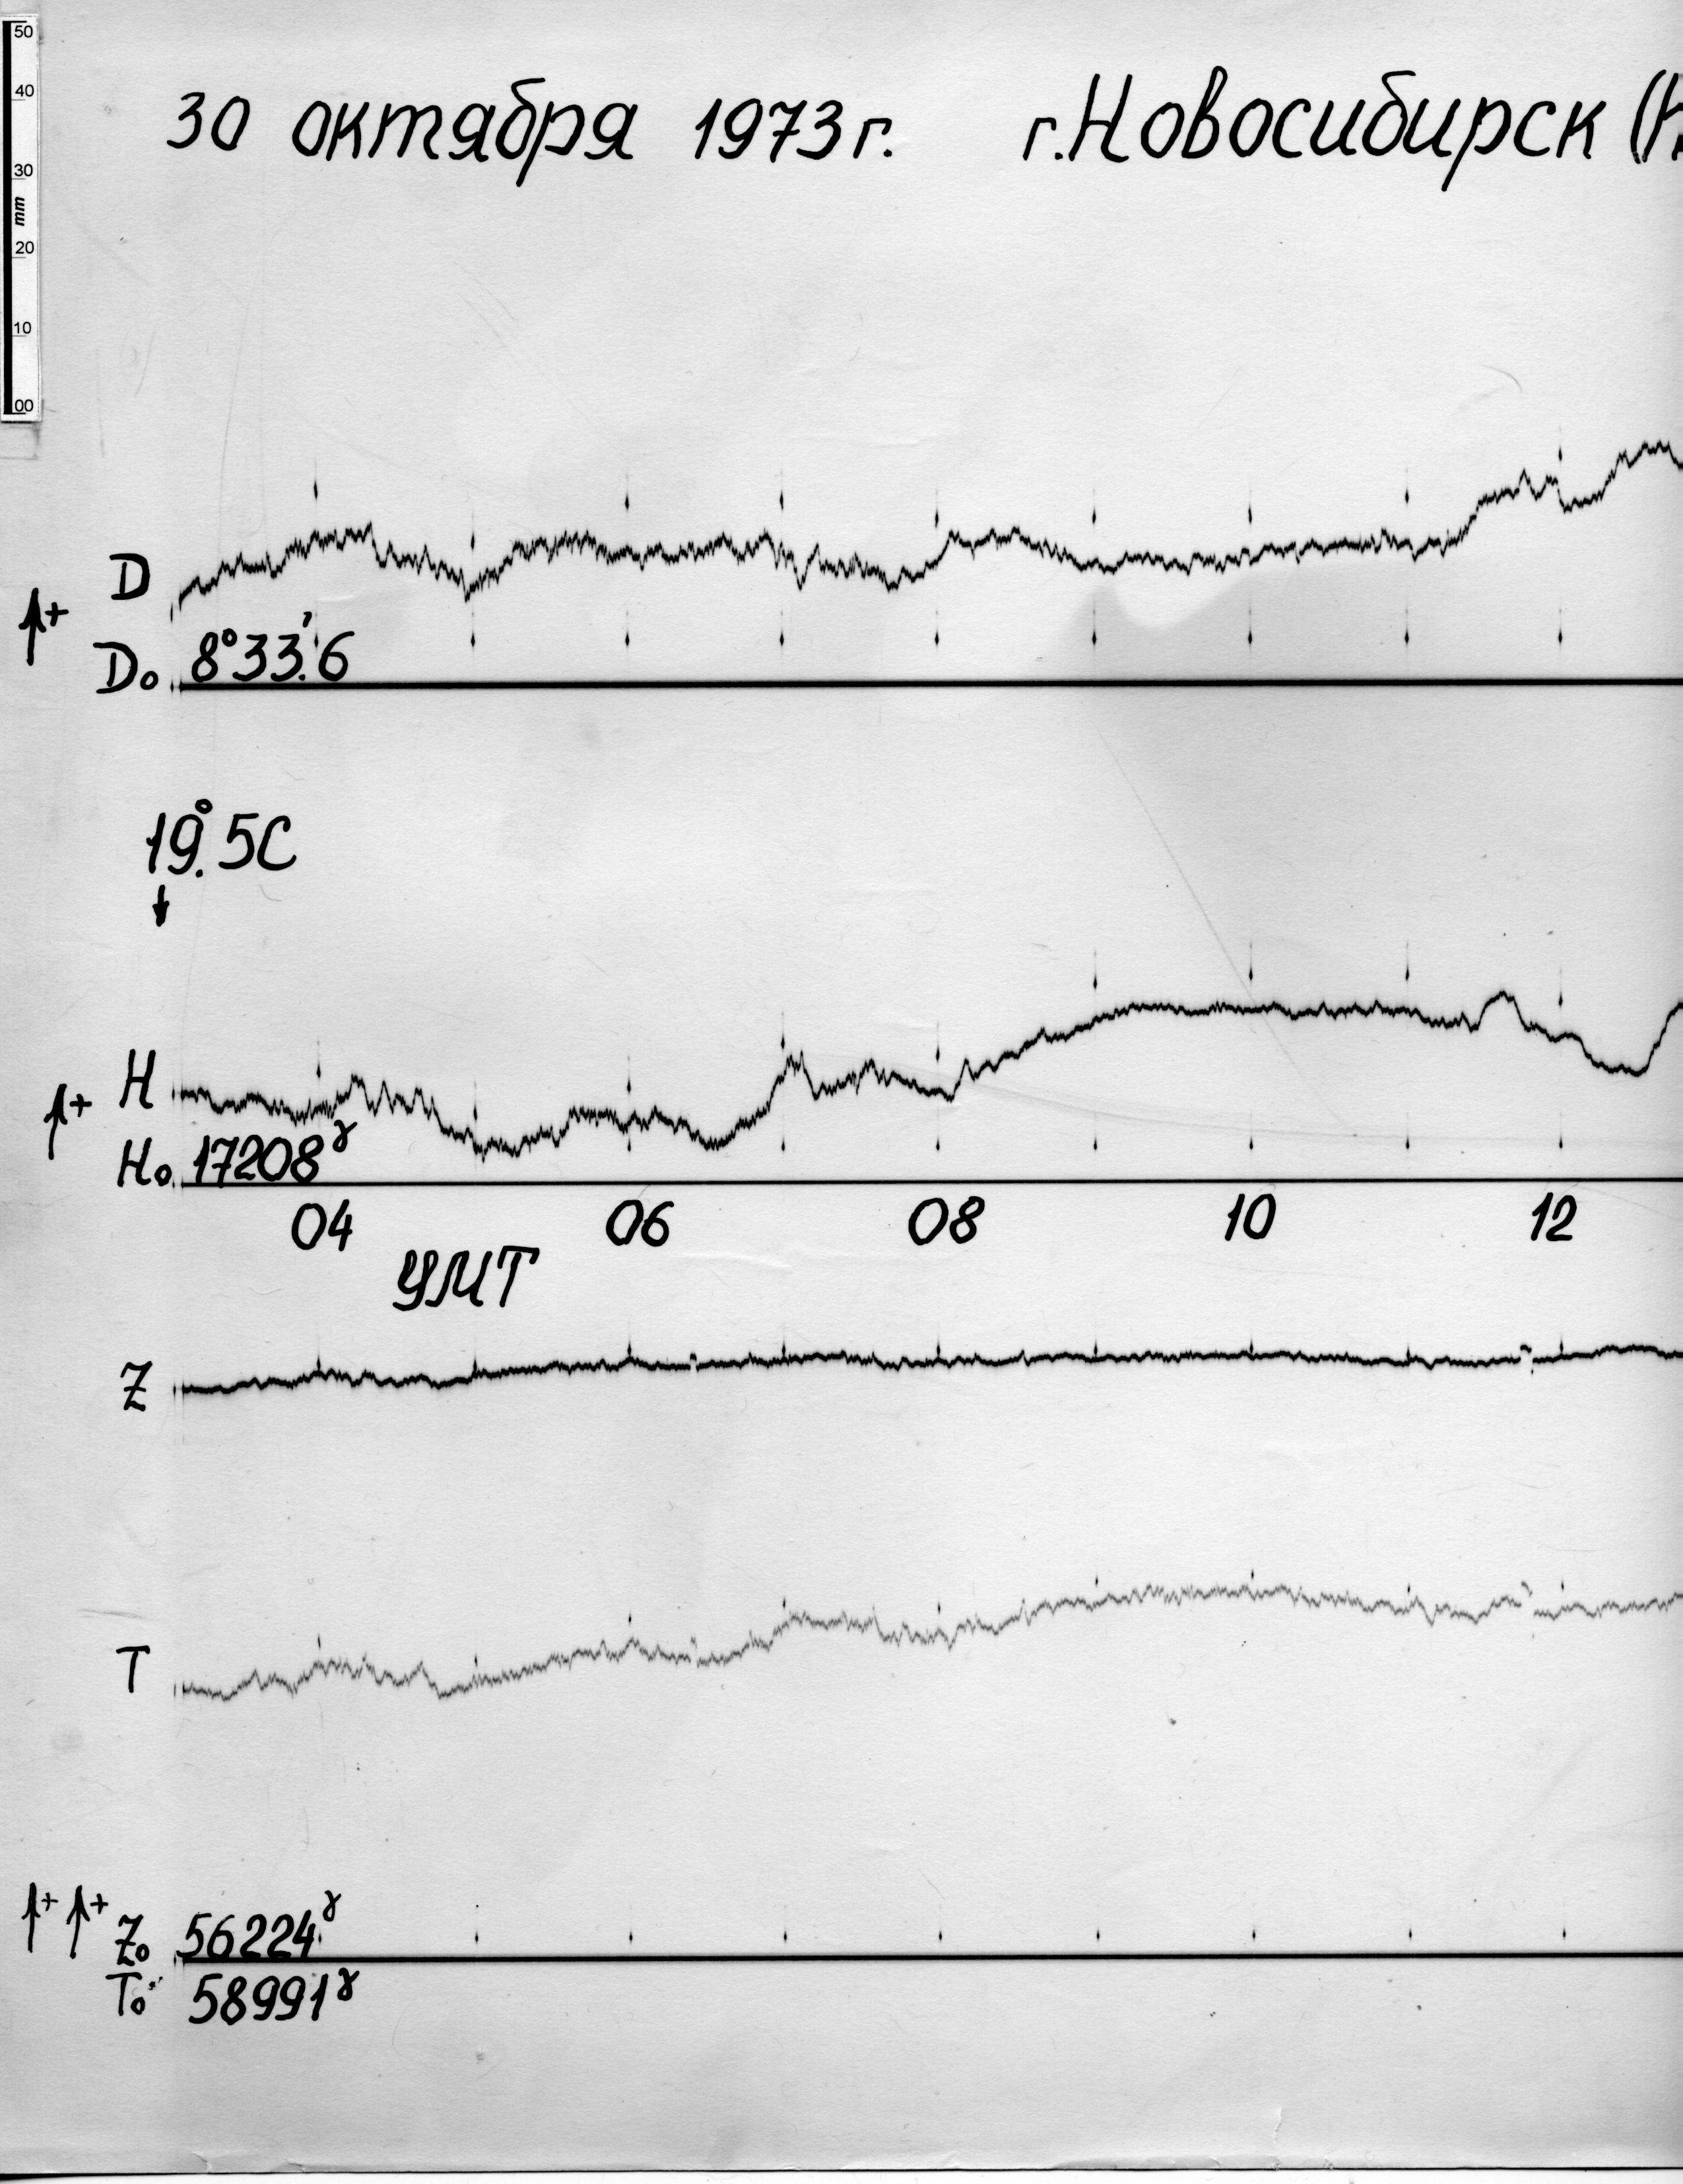 50
40
30
mm
20
10
00
30 октября 1973г. г.Новосибирск (К
D
+
D₀ 8°33.'6
19.°5С
H
+
H₀ 17208ᵞ
04 06 08 10 12
УМТ
Z
T
+ +
Z₀ 56224ᵞ
T₀ 58991ᵞ